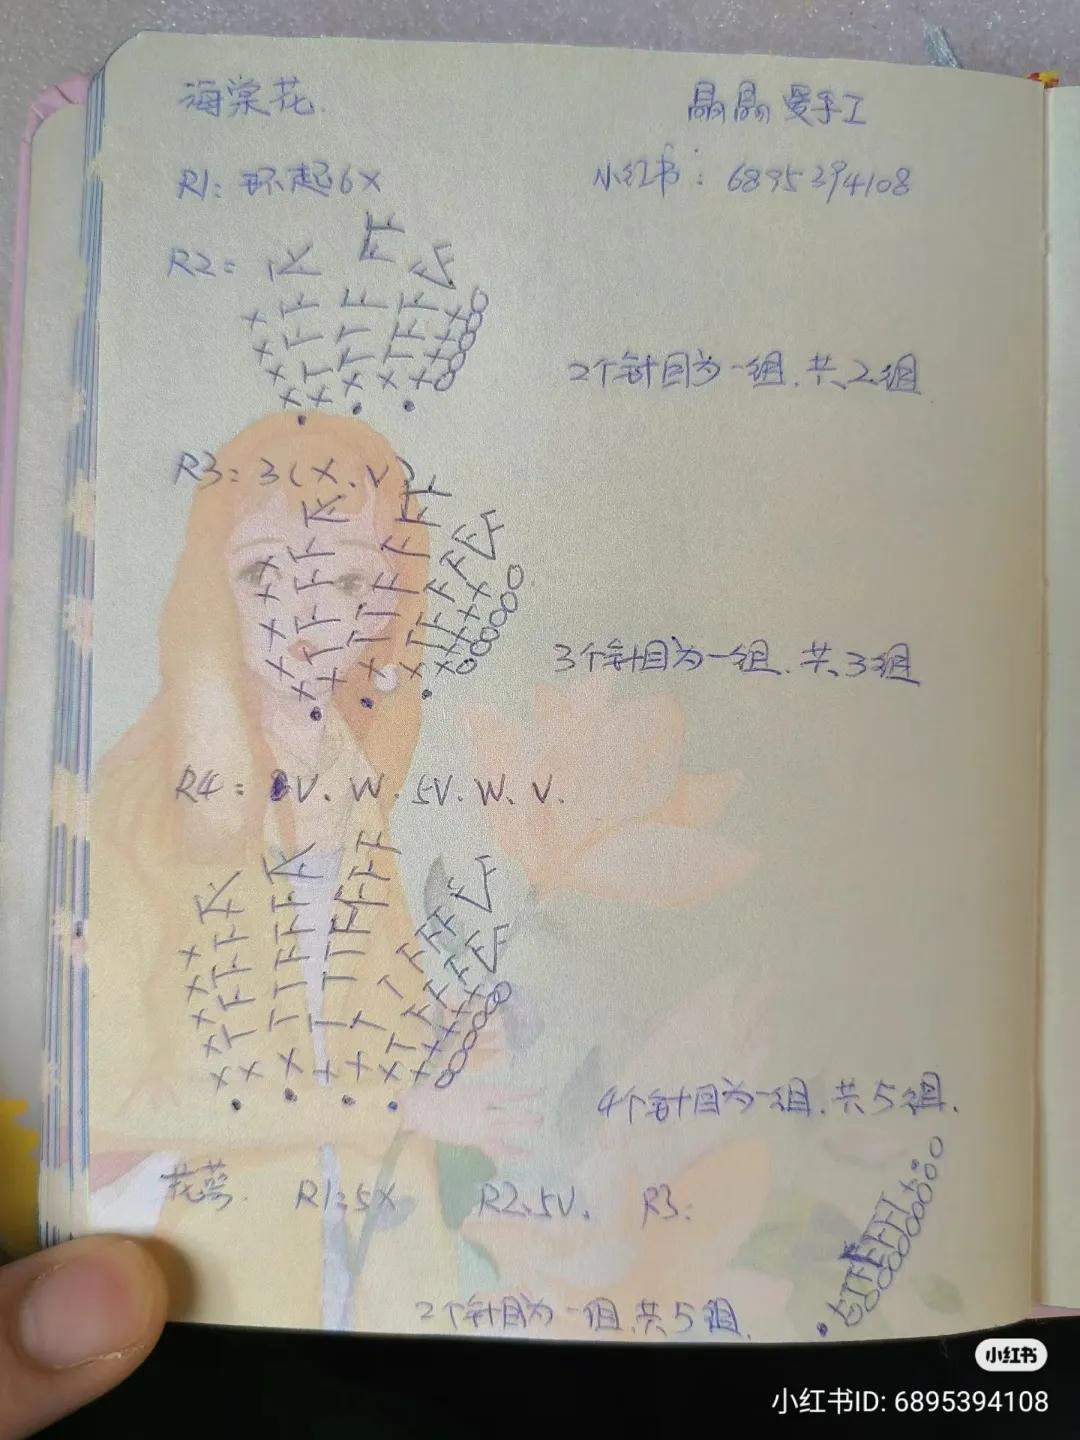 海棠花.
晶晶爱手工
R1: 环起6X
小红书: 6895394108
R2:
2个针目为一组.共2组
R3: 3(X、V)
3个针目为一组.共3组
R4: V. W. 5V. W. V.
4个针目为一组.共5组.
花萼. R1:5X R2:5V. R3:
2个针目为一组.共5组.
小红书
小红书ID: 6895394108